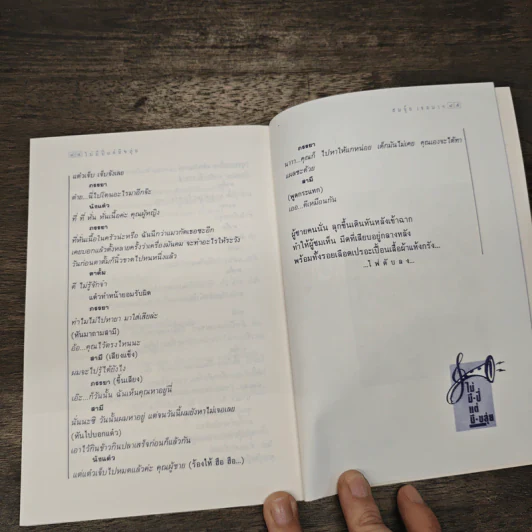 ไม่มีปี่แต่มีขลุ่ย
แต๋วเจ็บ เจ็บจังเลย
ภรรยา
ต๊าย...นี่ไปโดนอะไรมาอีกจ๊ะ
น้อยแต๋ว
ที่ ที่ หั่น หั่นเนื้อค่ะ คุณผู้หญิง
ภรรยา
ที่หั่นเนื้อในครัวน่ะหรือ ฉันนึกว่าแมวกัดเธอซะอีก
เคยบอกแล้วตั้งหลายครั้งว่าเครื่องมันคม จะทำอะไรให้ระวัง
วันก่อนตาตั้มก็นิ้วขาดไปหนหนึ่งแล้ว
ตาตั้ม
ดี ไม่รู้จักจำ
แต๋วทำหน้ายอมรับผิด
ภรรยา
ทำไมไม่ไปหายา มาใส่เสียล่ะ
(หันมาถามสามี)
อ้อ...คุณไว้ตรงไหนนะ
สามี (เสียงแข็ง)
ผมจะไปรู้ได้ยังไง
ภรรยา (ขึ้นเสียง)
เอ๊ะ...ก็วันนั้น ฉันเห็นคุณหาอยู่นี่
สามี
นั่นนะซิ วันนั้นผมหาอยู่ แต่จนวันนี้ผมยังหาไม่เจอเลย
(หันไปบอกแต๋ว)
เอาไว้กินข้าวกินปลาเสร็จก่อนก็แล้วกัน
น้อยแต๋ว
แต่แต๋วเจ็บไปหมดแล้วค่ะ คุณผู้ชาย (ร้องไห้ ฮือ ฮือ...)
ภรรยา
นาาา...คุณก็ ไปหาให้แกหน่อย เด็กมันไม่เคย คุณเองจะได้ทา
แผลซะด้วย
สามี
(พูดกระแทก)
เออ...ดีเหมือนกัน
ผู้ชายคนนั้น ลุกขึ้นเดินหันหลังเข้าฉาก
ทำให้ผู้ชมเห็น มีดที่เสียบอยู่กลางหลัง
พร้อมทั้งรอยเลือดเปรอะเปื้อนเสื้อผ้าแห้งกรัง...
...ไฟดับลง...
ไม่
มี-ปี่
แต่
มี-ขลุ่ย